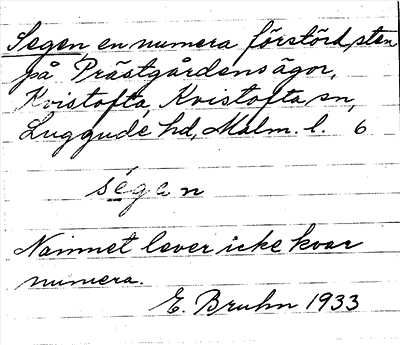 Segen, en numera förstörd sten
på Prästgårdens ägor,
Kvistofta, Kvistofta sn,
Luggude hd, Malm. l. 6
ségen
Namnet lever icke kvar
numera.
E. Bruhn 1933